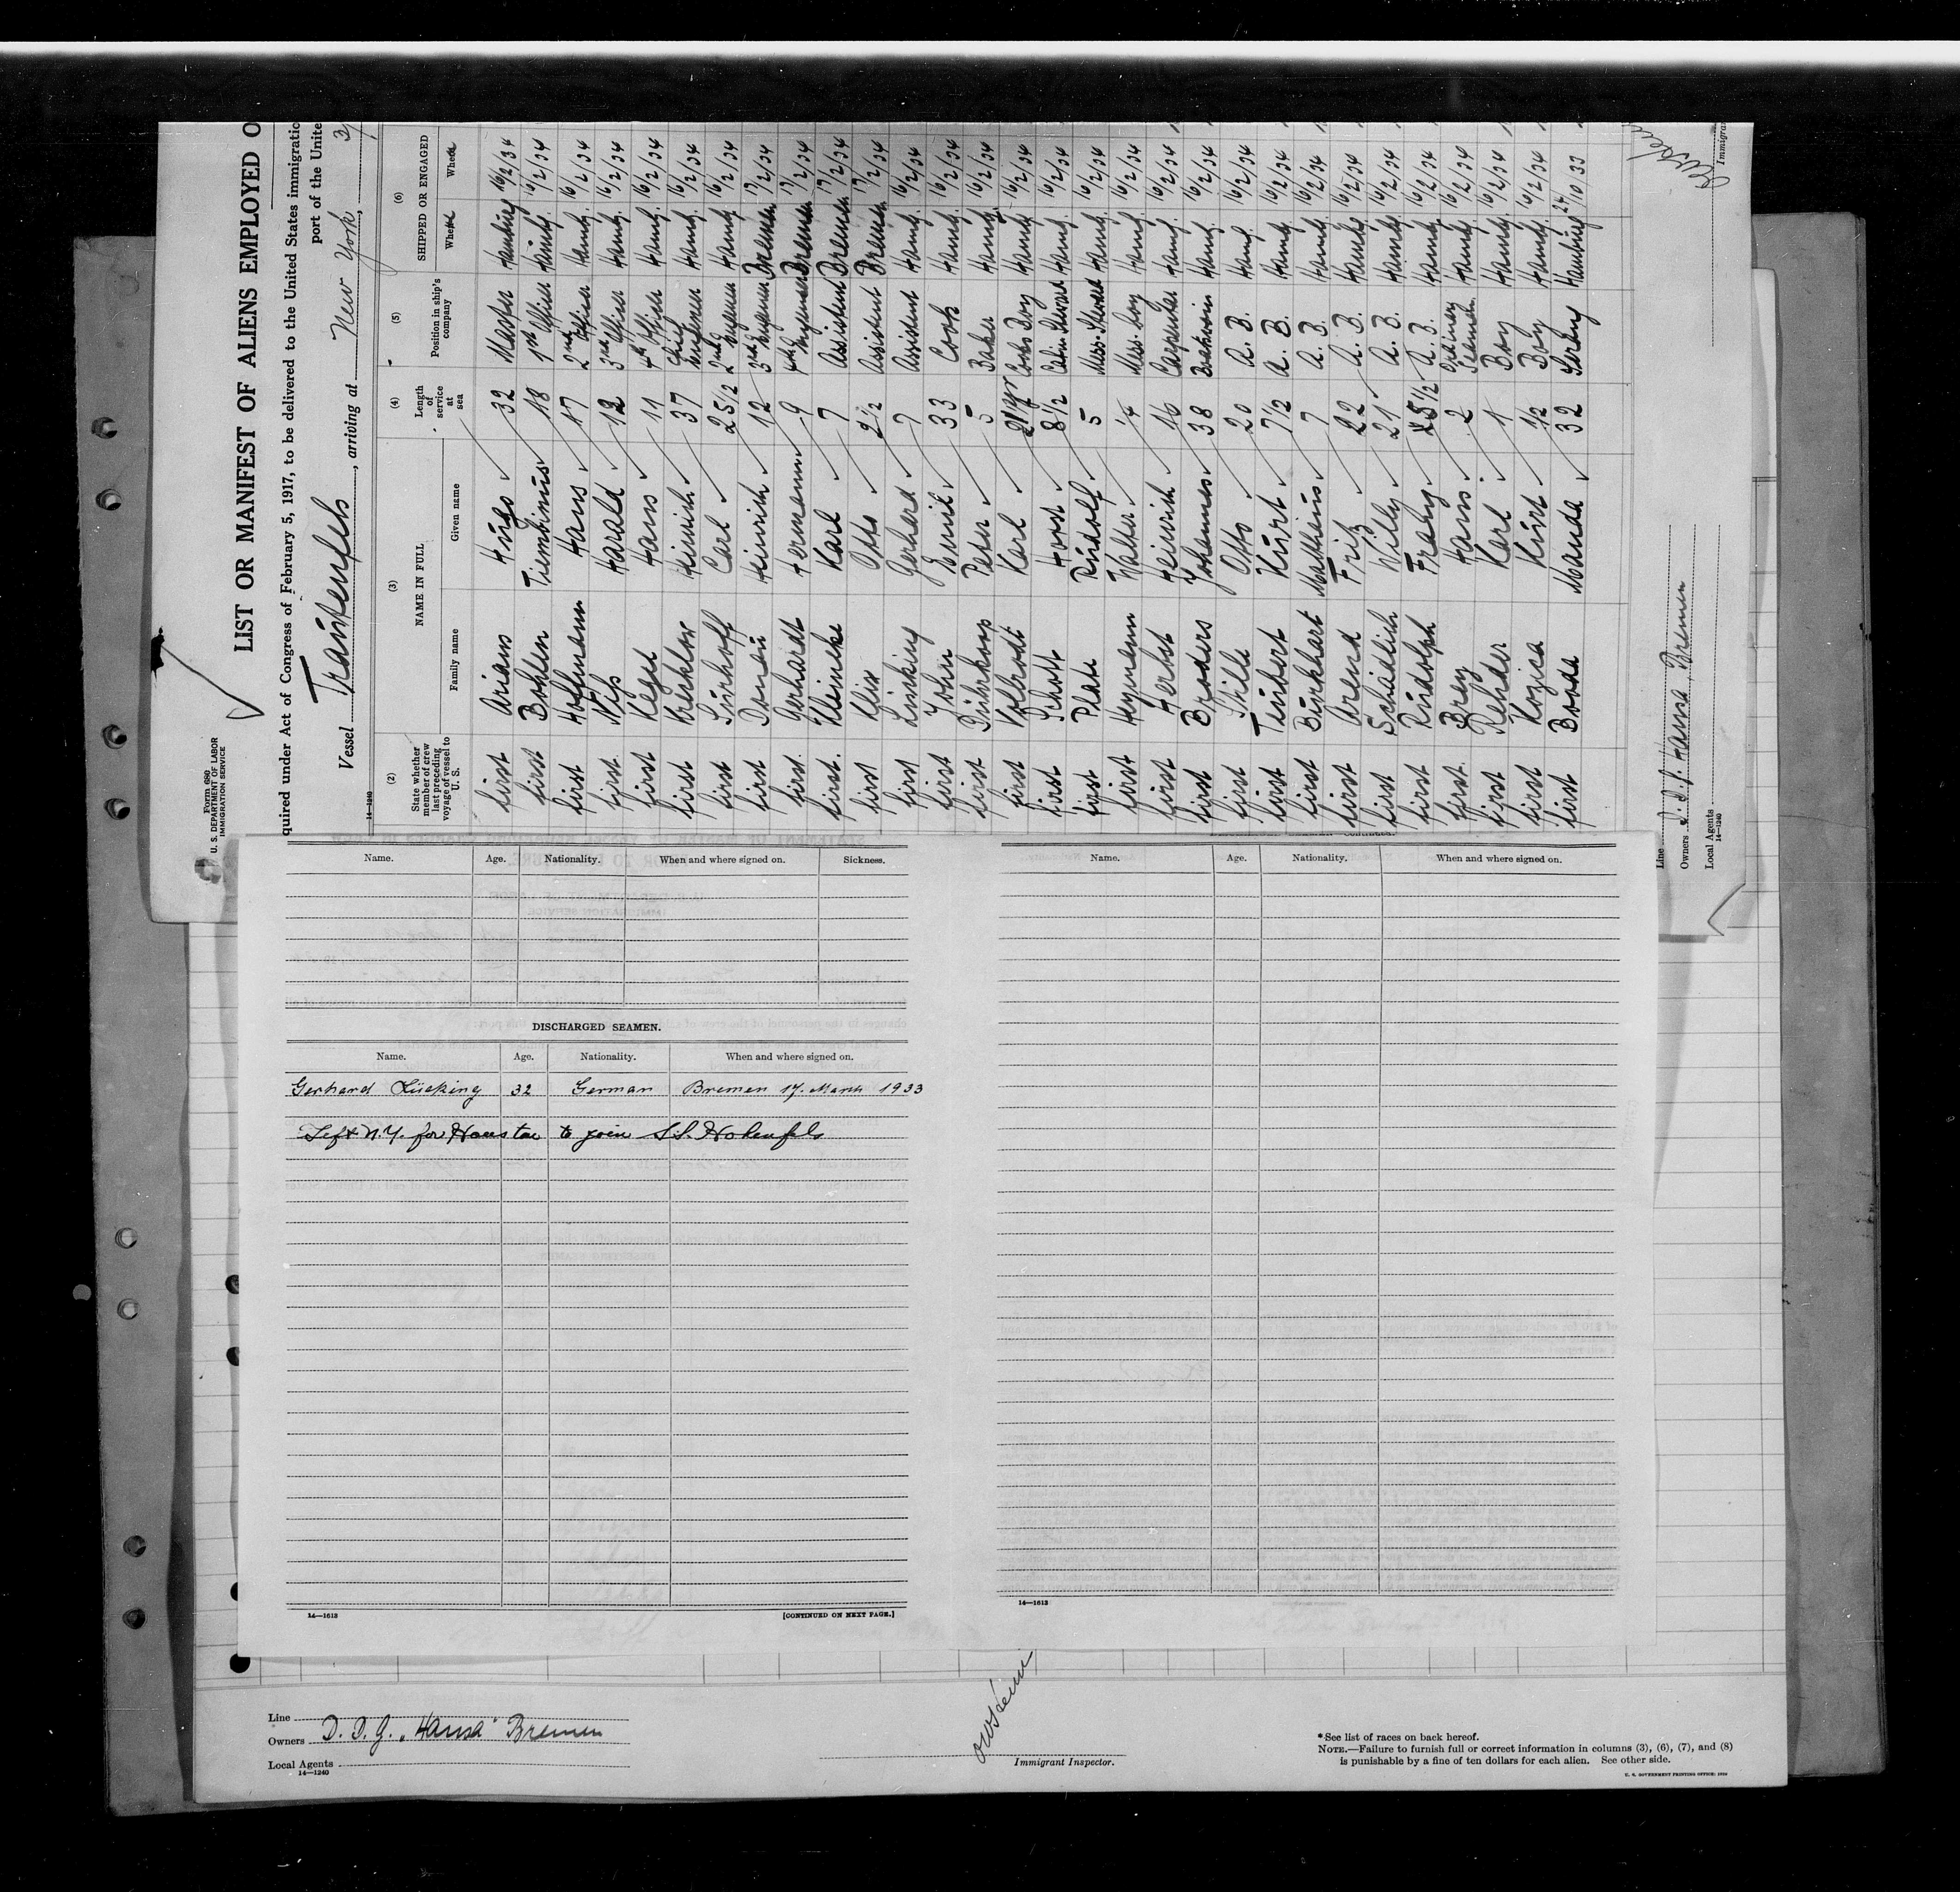 Form 680
U. S. DEPARTMENT OF LABOR
IMMIGRATION SERVICE
LIST OR MANIFEST OF ALIENS EMPLOYED O
quired under Act of Congress of February 5, 1917, to be delivered to the United States immigratio
port of the Unite
Vessel Trautenfels, arriving at New York,
14—1240
(2) (3) (4) (5) (6)
State whether member of crew last preceding voyage of vessel to U. S. NAME IN FULL Length of service at sea Position in ship's company SHIPPED OR ENGAGED
Family name Given name Where When
first Arians Hugo 32 Master Hamburg 16/2 34
first Bohlen Tiembinus 18 1st Officer Hambg. 16/2 34
first Hoffmann Hans 17 2nd Officer Hambg. 16/2 34
first Harald 12 3rd Officer Hambg. 16/2 34
first Kegel Hans 11 4th Officer Hambg. 16/2 34
first Heinrich 37 Chief Engineer Hambg. 16/2 34
first Surhoff Carl 25 1/2 2nd Engineer Hambg. 16/2 34
first Donau Heinrich 12 3rd Engineer Bremen 17/2 34
first Gerhardt Hermann 9 4th Engineer Bremen 17/2 34
first Kleinicke Karl 7 Assistent Bremen 17/2 34
first Klix Otto 2 1/2 Assistent Bremen 17/2 34
first Lücking Gerhard 7 Assistent Hambg. 16/2 34
first John Emil 33 Cook Hambg. 16/2 34
first Peter 5 Baker Hambg. 16/2 34
first Volbrodt Karl Cooks Boy Hambg. 16/2 34
first Schott Horst 8 1/2 Cabin Steward Hambg. 16/2 34
first Plate Rudolf 5 Mess-Steward Hambg. 16/2 34
first Heymann Walter 1/4 Mess-boy Hambg. 16/2 34
first Herbst Heinrich 16 Carpenter Hambg. 16/2 34
first Broders Johannes 38 Boatswain Hambg. 16/2 34
first Stille Otto 20 A. B. Hambg. 16/2 34
first Teubert Kurt 7 1/2 A. B. Hambg. 16/2 34
first Burkhart Matthäus 7 A. B. Hambg. 16/2 34
first Arend Fritz 22 A. B. Hambg. 16/2 34
first Schädlich Willy 21 A. B. Hambg. 16/2 34
first Rudolph Franz A. B. Hambg. 16/2 34
first Brey Hans 2 Ordinary Seaman Hambg. 16/2 34
first Rehder Karl 1 Boy Hambg. 16/2 34
first Kozica Kurt 1/2 Boy Hambg. 16/2 34
first Booda Manda 32 Serang Hamburg 24/10 33
Line
Owners D. D. G. Hansa, Bremen
Local Agents
14—1240
Immigran
Name. Age. Nationality. When and where signed on. Sickness.
DISCHARGED SEAMEN.
Name. Age. Nationality. When and where signed on.
Gerhard Lücking 32 German Bremen 17. March 1933
Left N.Y. for Houston to join S.S. Hohenfels
14—1613
[CONTINUED ON NEXT PAGE.]
Name. Age. Nationality. When and where signed on.
14—1613
Line
Owners D. D. G. „Hansa" Bremen
Local Agents
14—1240
Immigrant Inspector.
*See list of races on back hereof.
NOTE.—Failure to furnish full or correct information in columns (3), (6), (7), and (8)
is punishable by a fine of ten dollars for each alien. See other side.
U. S. GOVERNMENT PRINTING OFFICE: 1930